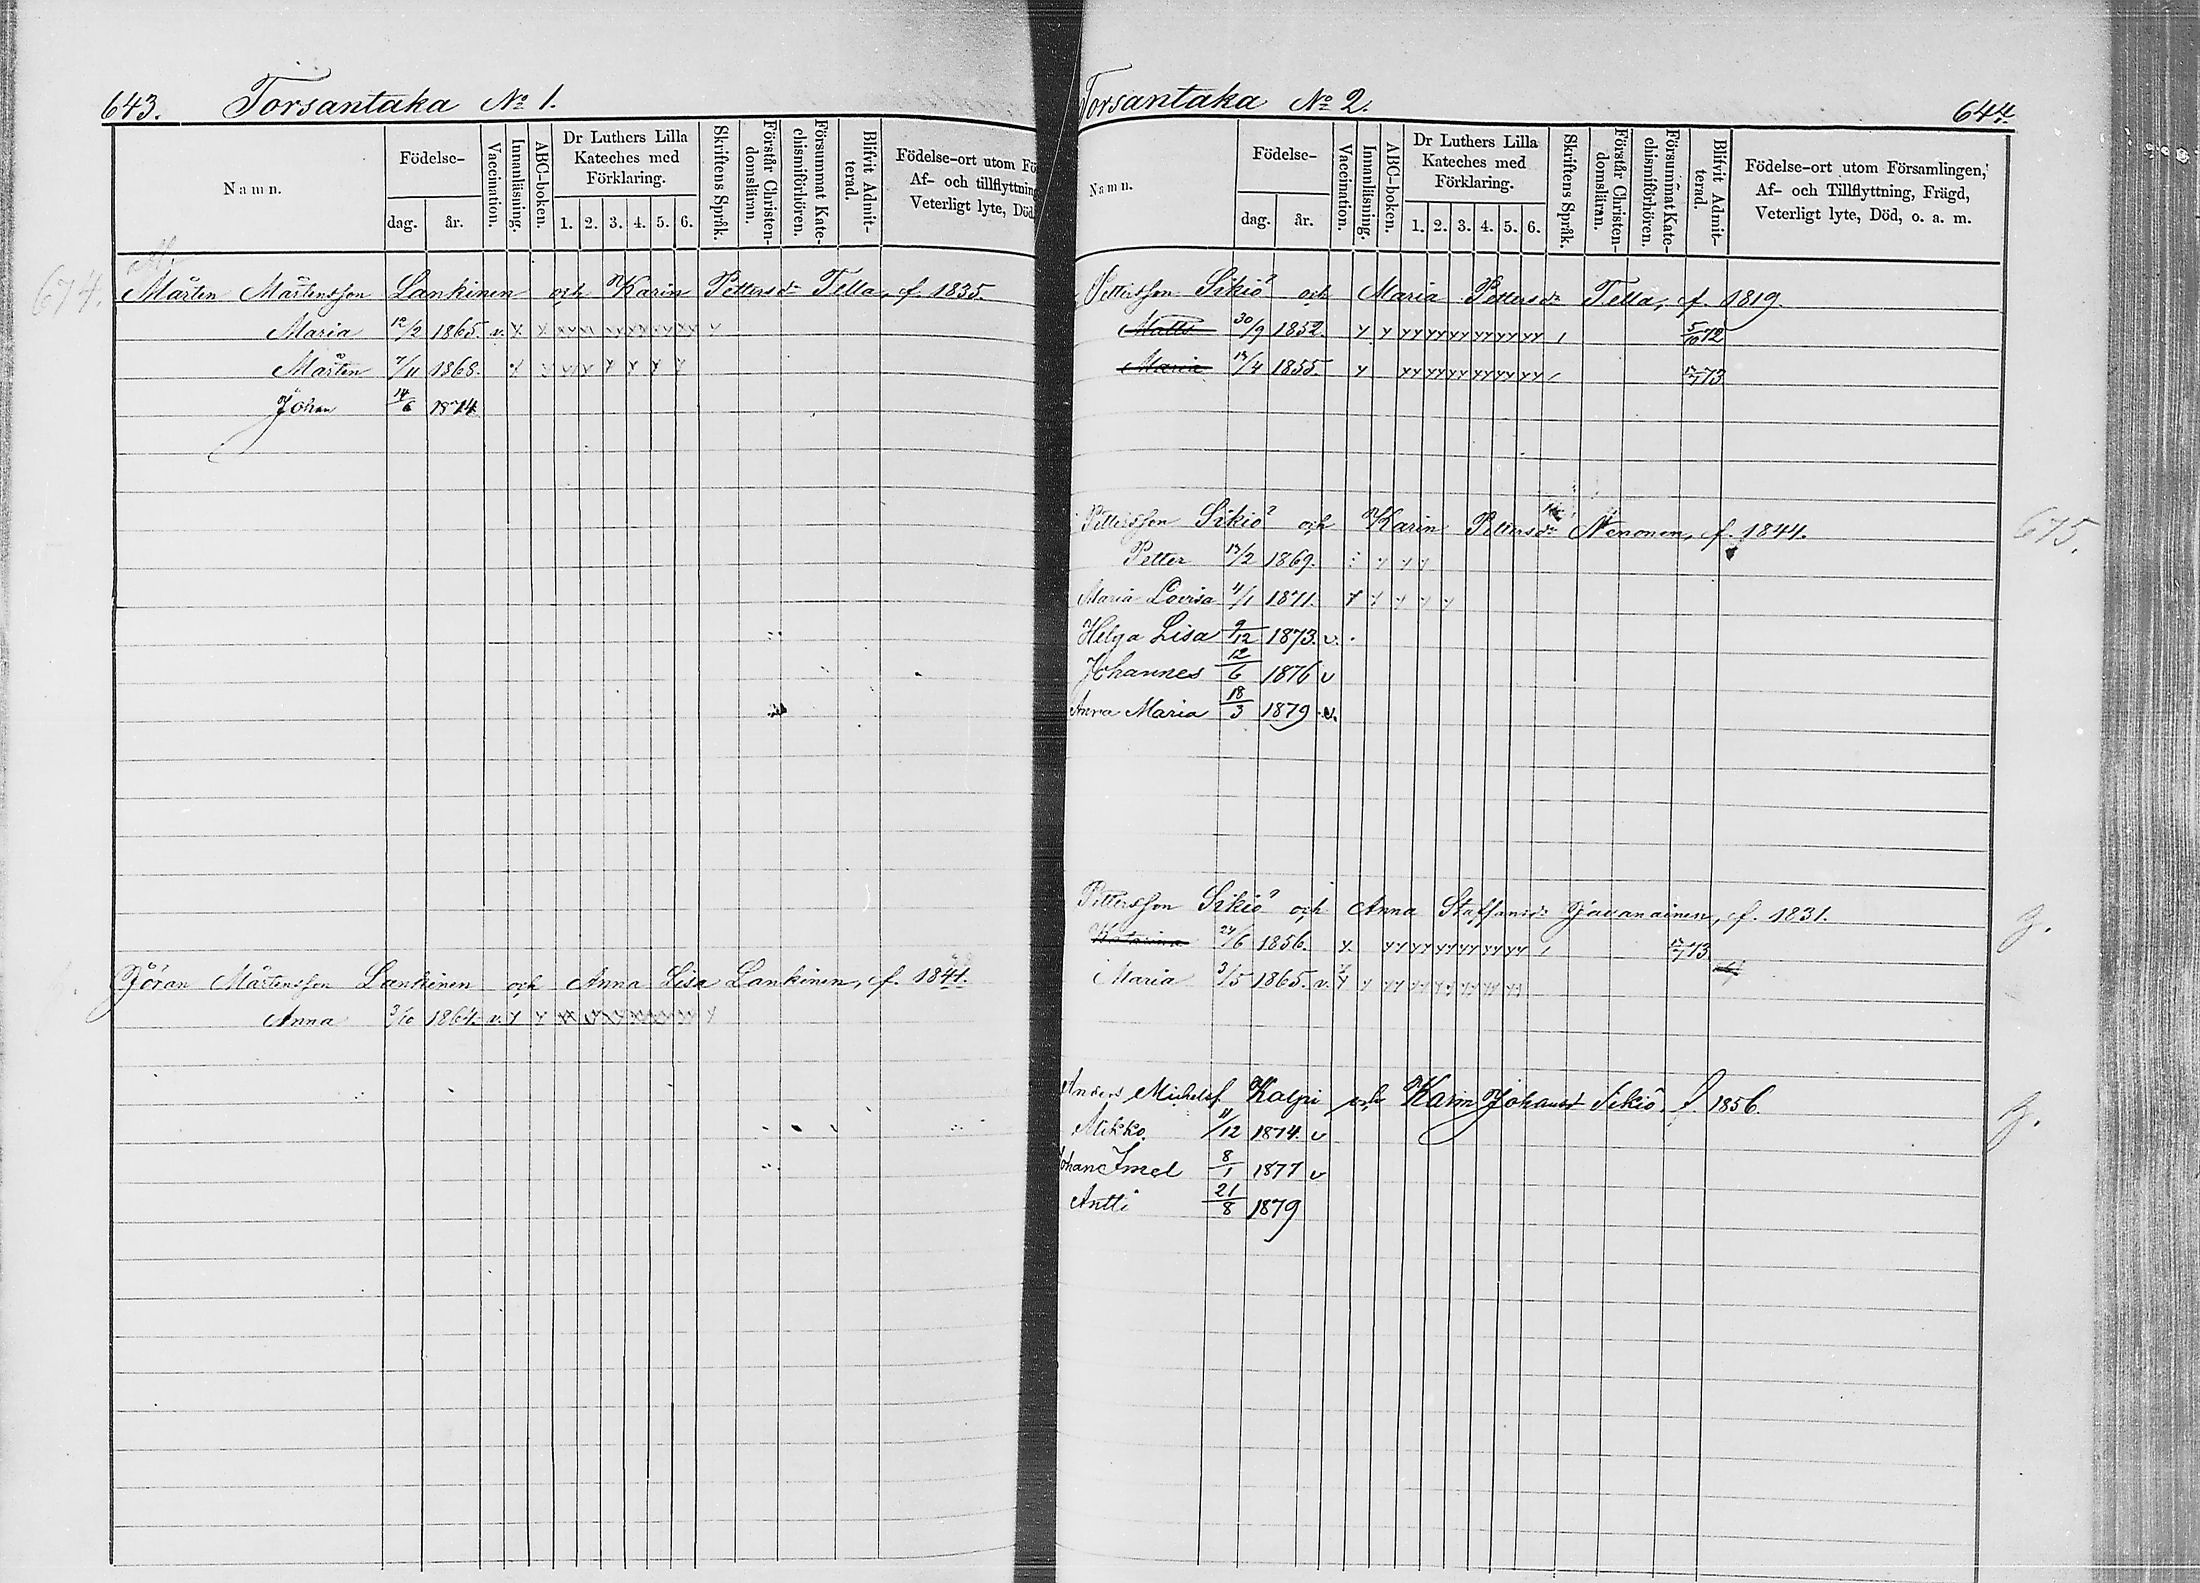 643. Torsantaka No 1.
Namn.
Födelse-
dag.
år.
Vaccination.
Innanläsning.
ABC-boken.
Dr Luthers Lilla Kateches med Förklaring.
1. 2. 3. 4. 5. 6.
Skriftens Språk.
Förstår Christen-domsläran.
Försummat Kate-chismiförhören.
Blifvit Admit-terad.
Födelse-ort utom Fö
Af- och tillflyttning
Veterligt lyte, Död,
674.
Mårten Mårtensson Lankinen och Karin Pettersdr Tella, f. 1835.
Maria 12/2 1865. v.
Mårten 7/11 1868.
Johan 14/6 1874
Jöran Mårtensson Lankinen och Anna Lisa Lankinen, f. 1841.
Anna 3/10 1864. v.
Torsantaka No 2. 644.
Namn.
Födelse-
dag.
år.
Vaccination.
Innanläsning.
ABC-boken.
Dr Luthers Lilla Kateches med Förklaring.
1. 2. 3. 4. 5. 6.
Skriftens Språk.
Förstår Christen-domsläran.
Försummat Kate-chismiförhören.
Blifvit Admit-terad.
Födelse-ort utom Församlingen,
Af- och Tillflyttning, Frägd,
Veterligt lyte, Död, o. a. m.
Pettersson Sikiö och Maria Pettersdr Tella, f. 1819.
Matts 30/9 1852. 5/10 72
Maria 13/4 1855. 73
Pettersson Sikiö och Karin Pettersdr Nenonen, f. 1844.
675.
Petter 13/2 1869.
Maria Lovisa 4/1 1871.
Helga Lisa 9/12 1873. v.
Johannes 12/6 1876 v
Anna Maria 18/3 1879 v.
Pettersson Sikiö och Anna Staffansdr Javanainen, f. 1831.
Katarina 24/6 1856. 73
Maria 3/5 1865. v.
Anders Michelsf Kalpi och Karin Johansd Sikiö f 1856.
Mikko 11/12 1874. v
8/1 1877 v
Antti 21/8 1879